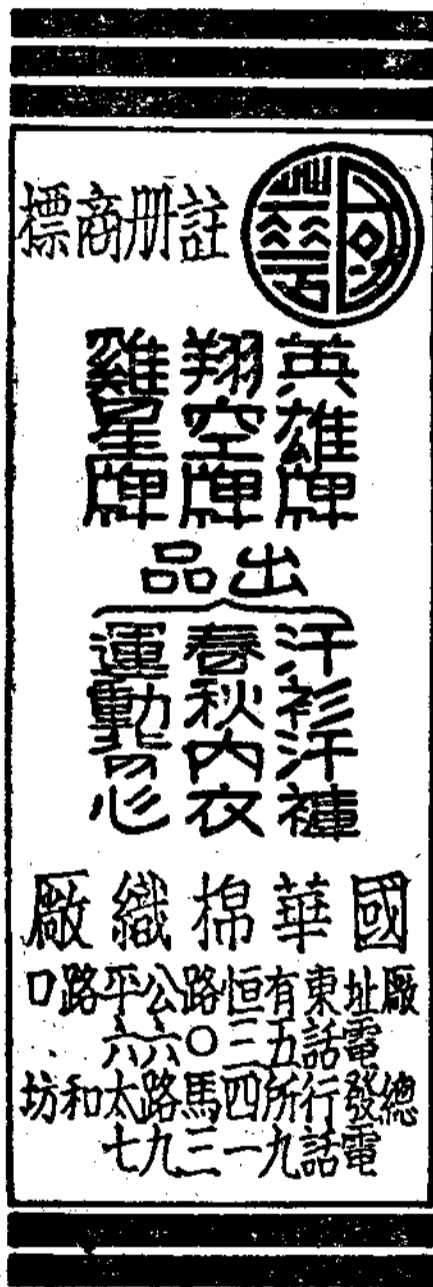 註册商標
英雄牌
翔空牌
雞星牌
出品
汗衫汗褲
春秋內衣
運動背心
國華棉織廠
廠址東有恒路公平路口
電話五三〇六六
總發行所四馬路太和坊
電話九一三九七